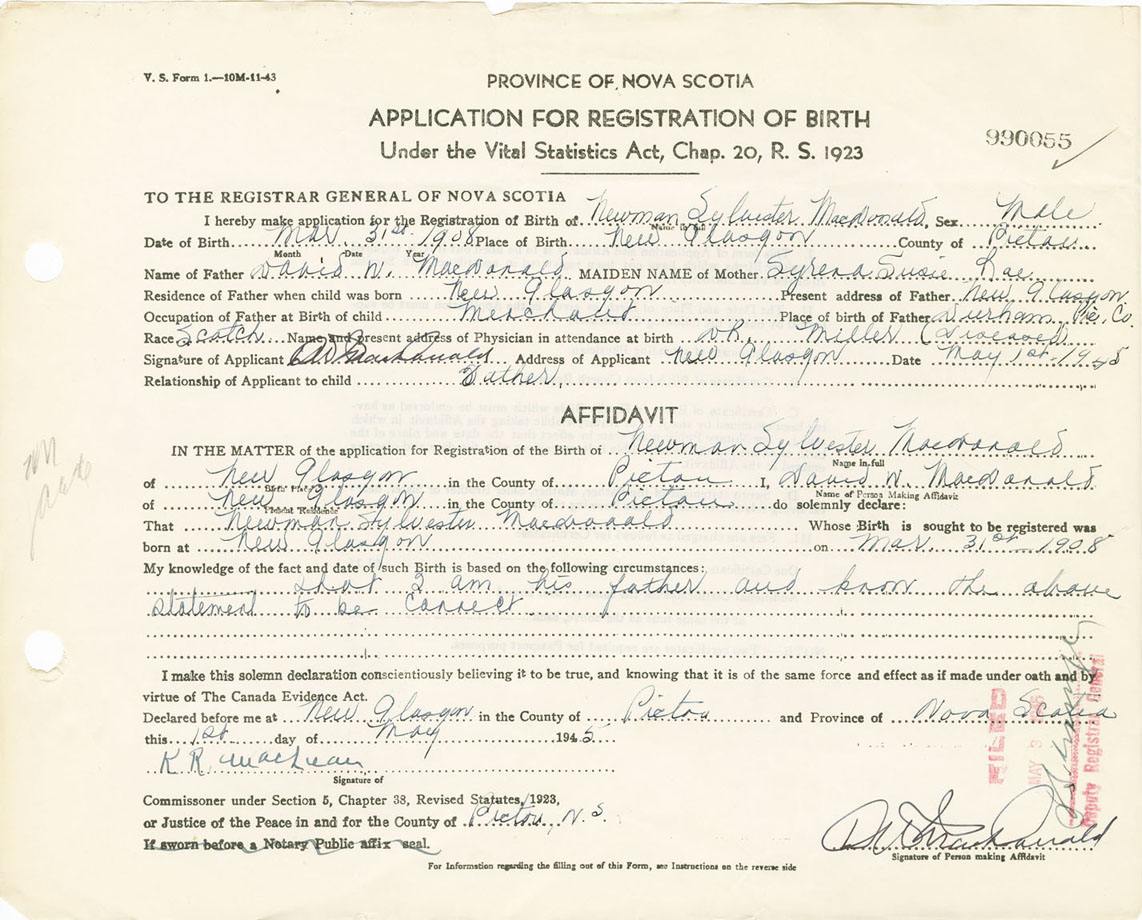 V. S. Form 1.—10M-11-43
PROVINCE OF NOVA SCOTIA
APPLICATION FOR REGISTRATION OF BIRTH
990055
Under the Vital Statistics Act, Chap. 20, R. S. 1923
TO THE REGISTRAR GENERAL OF NOVA SCOTIA
I hereby make application for the Registration of Birth of Newman Sylvester Macdonald, Sex Male
Name in full
Date of Birth Mar. 31st 1908 Place of Birth New Glasgow County of Pictou
Month Date Year
Name of Father David W. MacDonald MAIDEN NAME of Mother Syrena Susie Rae
Residence of Father when child was born New Glasgow Present address of Father New Glasgow
Occupation of Father at Birth of child Merchant Place of birth of Father Durham Pic. Co.
Race Scotch Name and present address of Physician in attendance at birth DR. Miller (Deceased)
Signature of Applicant D W MacDonald Address of Applicant New Glasgow Date May 1st 1945
Relationship of Applicant to child Father
AFFIDAVIT
IN THE MATTER of the application for Registration of the Birth of Newman Sylvester Macdonald
Name in full
of New Glasgow in the County of Pictou I, David W. MacDonald
Birth Place Name of Person Making Affidavit
of New Glasgow in the County of Pictou do solemnly declare:
Present Residence
That Newman Sylvester Macdonald Whose Birth is sought to be registered was
born at New Glasgow on Mar. 31st 1908
My knowledge of the fact and date of such Birth is based on the following circumstances:
that I am his father and know the above
statement to be correct
I make this solemn declaration conscientiously believing it to be true, and knowing that it is of the same force and effect as if made under oath and by
virtue of The Canada Evidence Act.
Declared before me at New Glasgow in the County of Pictou and Province of Nova Scotia
this 1st day of May 1945
K R. MacLean
Signature of
Commissoner under Section 5, Chapter 38, Revised Statutes, 1923,
or Justice of the Peace in and for the County of Pictou, N.S.
If sworn before a Notary Public affix seal.
FILED
MAY 3
Deputy Registrar General
D W MacDonald
Signature of Person making Affidavit
For Information regarding the filling out of this Form, see Instructions on the reverse side